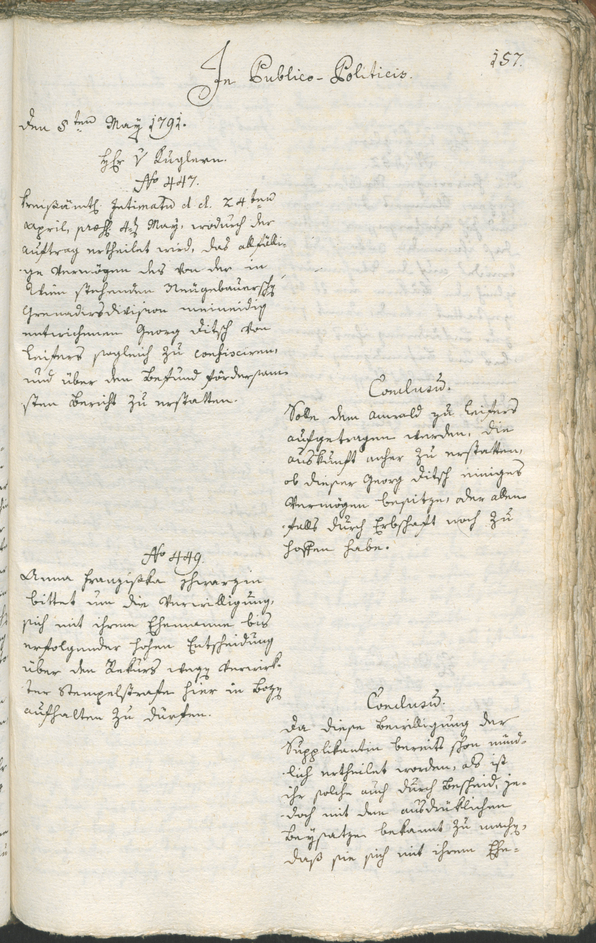 157.
In Publico-Politicis.
den 5ten May 1791.
Hr. v Kuglern.
No 447.
Kreisämtl. Intimatn d. d. 24ten
April, praes. 4t May, wodurch der
Auftrag ertheilet wird, das allfälli-
ge Vermögen des von der in
Wien stehenden Neugebauersch
Grenadiersdivision meineidig
entwichenen Georg Ditsch von
Leifers sogleich zu confisciren,
und über den Befund fördersam-
sten Bericht zu erstatten.
Conclusu.
Solle dem Anwald zu Leifers
aufgetragen werden, die
Auskunft anher zu erstatten,
ob dieser Georg Ditsch einiges
Vermögen besitze, oder allen-
falls durch Erbschaft noch zu
hoffen habe.
No 449.
Anna Franziska Schwarzin
bittet um die Verwilligung,
sich mit ihrem Ehemanne bis
erfolgender hohen Entscheidung
über den Rekurs wegen verwirk-
ter Stempelstrafe hier in Bozen
aufhalten zu dürfen.
Conclusu.
Da diese Bewilligung der
Supplikantin bereits schon münd-
lich ertheilet worden, als ist
ihr solche auch durch Bescheid, je-
doch mit dem ausdrücklichen
Beysatze bekannt zu machen,
daß sie sich mit ihrem Ehe-